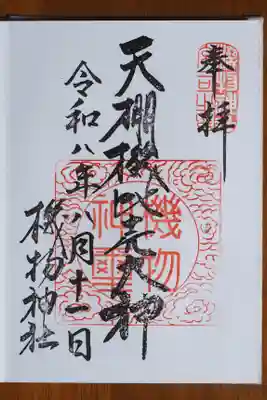 奉拝
天棚機比売大神
令和八年八月十一日
機物神社
機物
神璽